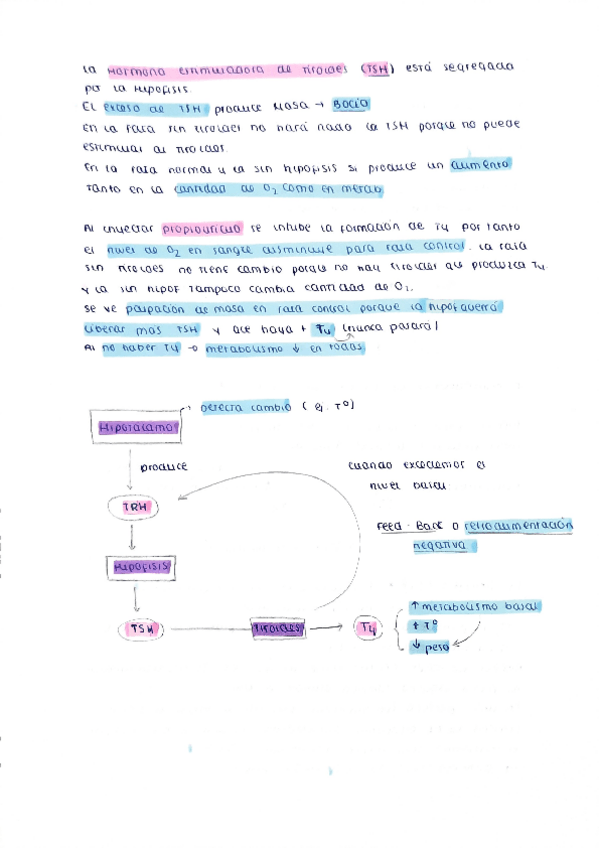 La Hormona estimuladora de tiroides (TSH) está segregada
por la Hipofisis.
El exceso de TSH produce masa → Bocio
En la rata sin tiroides no hará nada la TSH porque no puede
estimular al tiroides.
En la rata normal y la sin hipofisis si produce un aumento
tanto en la cantidad de O₂ como en metab
Al inyectar propiouracilo se inhibe la formación de T4 por tanto
el nivel de O₂ en sangre disminuye para rata control. La rata
sin tiroides no tiene cambio porque no hay tiroides que produzca T4
y la sin hipof tampoco cambia cantidad de O₂.
Se ve palpación de masa en rata control porque la hipof querrá
liberar más TSH y que haya + T4 (nunca pasará)
Al no haber T4 → metabolismo ↓ en todas
Detecta cambio (ej. Tº)
Hipotalamo
produce
cuando excedemos el
nivel basal
TRH
Feed-Back o retroalimentación
negativa
Hipofisis
↑ metabolismo basal
TSH
Tiroides
T4
↑ Tº
↓ peso